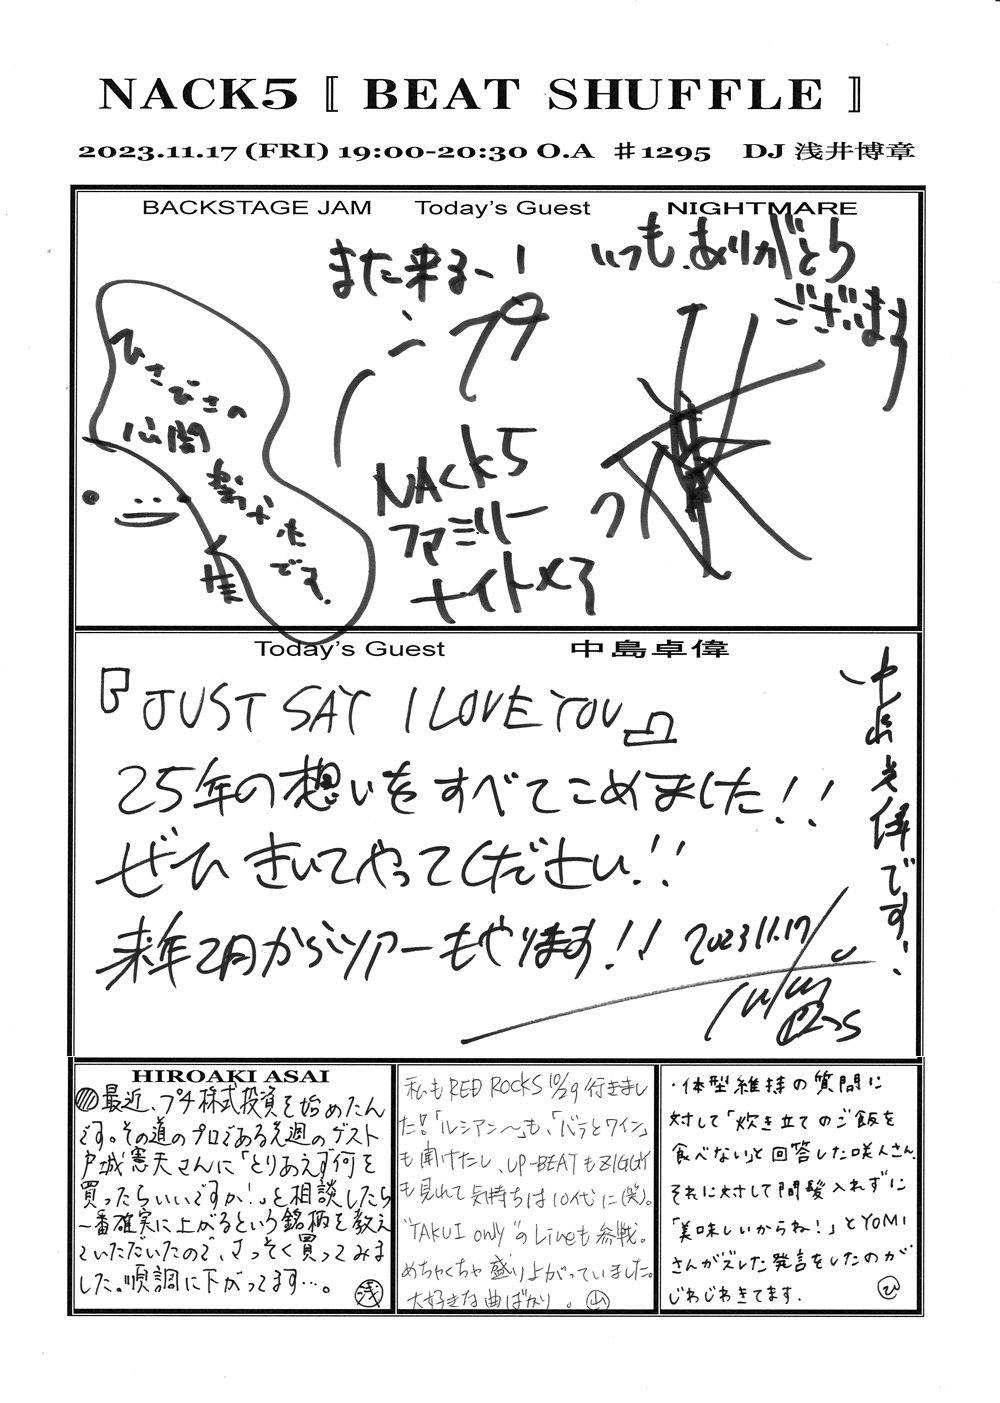 NACK5 〚 BEAT SHUFFLE 〛
2023.11.17 (FRI) 19:00-20:30 O.A ♯1295 DJ 浅井博章
BACKSTAGE JAM Today's Guest NIGHTMARE
また来るー!
いつも、ありがとう
ございます
ひさびさの
公開
です.
NACK5
ファミリー
ナイト
Today's Guest 中島卓偉
『JUST SAY I LOVE YOU』
25年の想いをすべてこめました!!
ぜひきいてやってください!!
来年2月からツアーもやります!! 2023.11.17
中島卓偉です!
HIROAKI ASAI
最近、プチ株式投資を始めたん
です。その道のプロである先週のゲスト
戸城憲夫さんに「とりあえず何を
買ったらいいですか!」と相談したら
一番確実に上がるという銘柄を教え
ていただいたので、さっそく買ってみま
した。順調に下がってます…。 浅
私もRED ROCKS 10/29 行きまし
た!「ルシアン〜」も、「バラとワイン」
も聞けたし、UP-BEATもZIGGY
も見れて気持ちは10代に(笑)。
"TAKUI only"のLiveも参戦。
めちゃくちゃ盛り上がっていました。
大好きな曲ばかり。 山
・体型維持の質問に
対して「炊き立てのご飯を
食べない」と回答した咲人さん。
それに対して間髪入れずに
「美味しいからね!」とYOMI
さんがズレた発言をしたのが
じわじわきてます. ひ